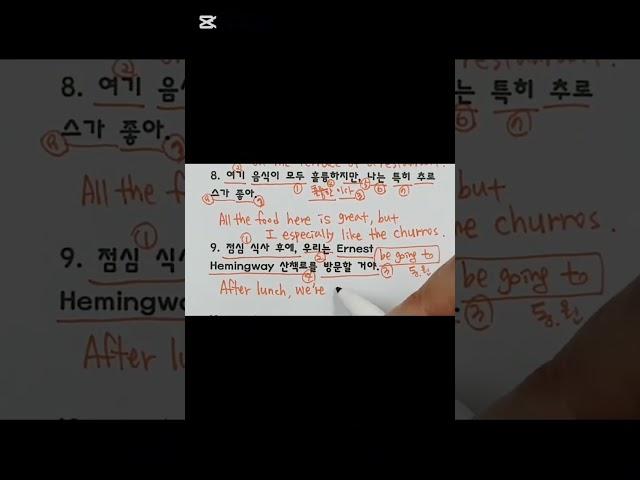 8. 여기 음식이 모두 훌륭하지만, 나는 특히 추르
스가 좋아.
훌륭한 이다
All the food here is great, but
I especially like the churros.
9. 점심 식사 후에, 우리는 Ernest
be going to
Hemingway 산책로를 방문할 거야.
동.원
After lunch, we're